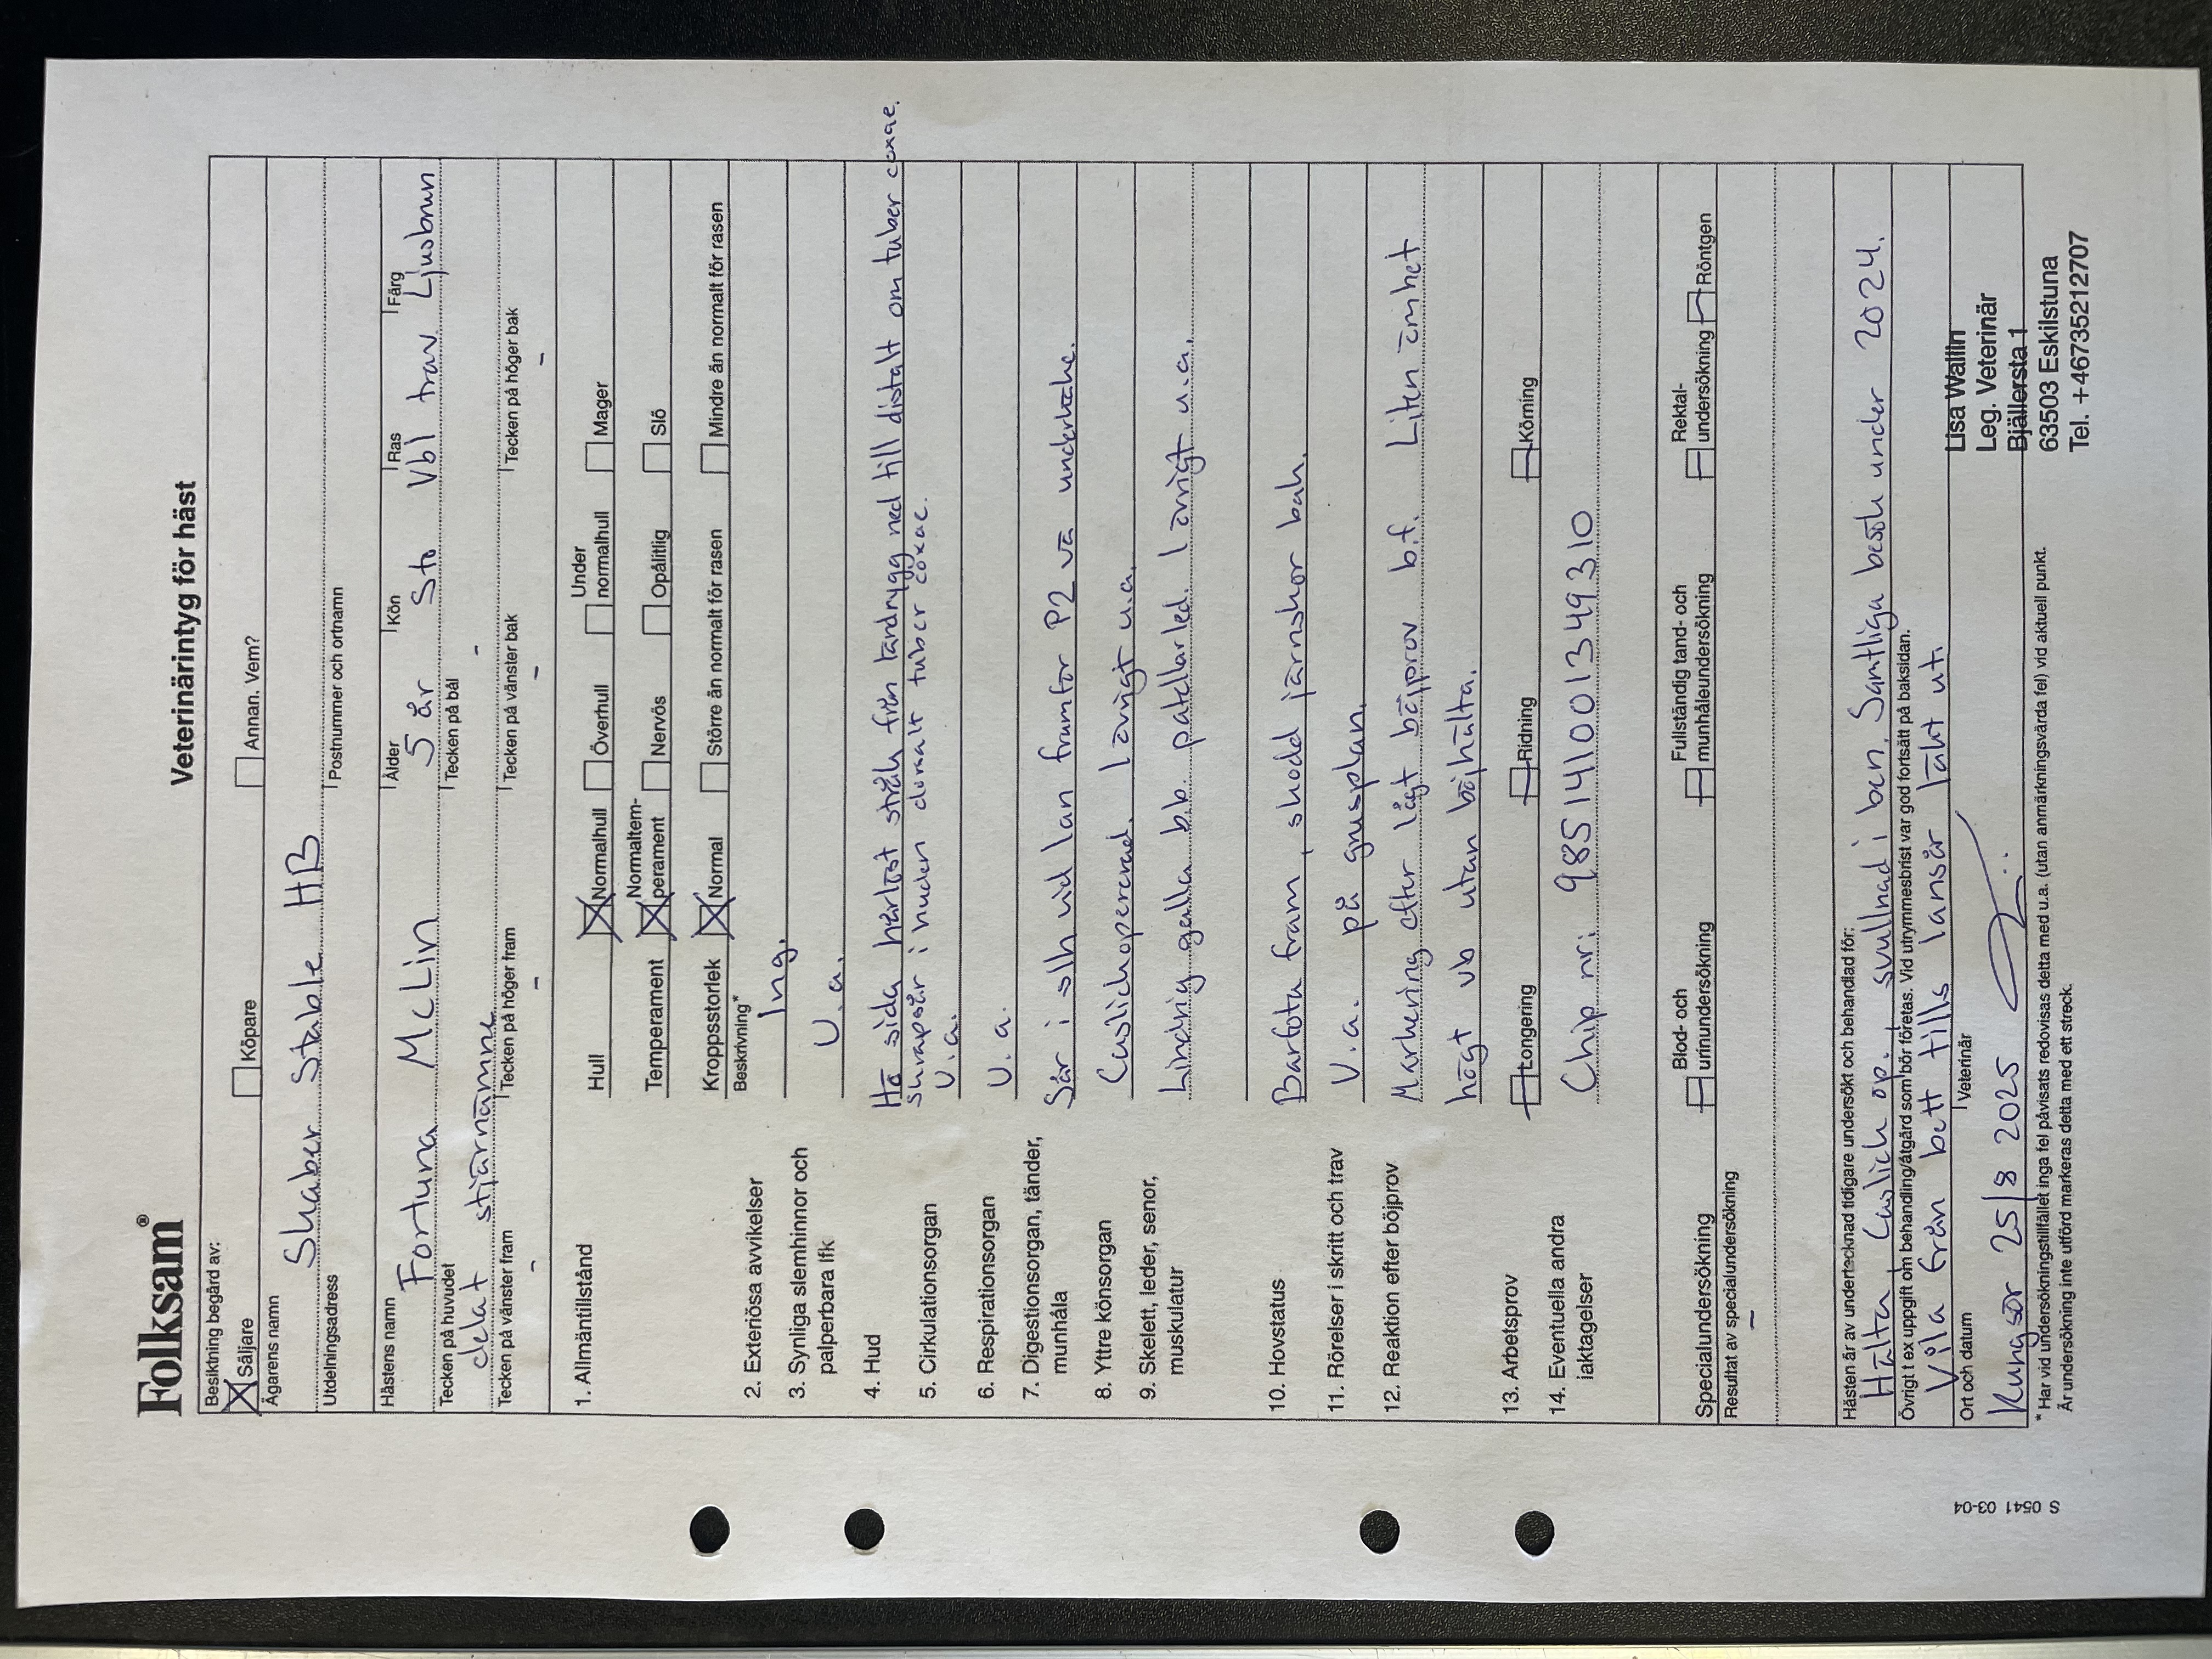 Folksam®
Veterinärintyg för häst
Besiktning begärd av:
☒ Säljare ☐ Köpare ☐ Annan. Vem?
Ägarens namn
Skaber Stable HB
Utdelningsadress Postnummer och ortnamn
Hästens namn Ålder Kön Ras Färg
Fortuna McLin 5 år Sto Vbl trav Ljusbrun
Tecken på huvudet Tecken på bål
delat stjärnämne -
Tecken på vänster fram Tecken på höger fram Tecken på vänster bak Tecken på höger bak
- - - -
1. Allmäntillstånd Hull ☒ Normalhull ☐ Överhull ☐ Under normalhull ☐ Mager
Temperament ☒ Normaltemperament ☐ Nervös ☐ Opålitlig ☐ Slö
Kroppsstorlek ☒ Normal ☐ Större än normalt för rasen ☐ Mindre än normalt för rasen
Beskrivning*
2. Exteriösa avvikelser Ing.
3. Synliga slemhinnor och palperbara lfk U.a.
4. Hud Hö sida hårlöst stråk från ländrygg ned till distalt om tuber coxae.
skrapsår i huden dorsalt tuber coxae.
5. Cirkulationsorgan U.a.
6. Respirationsorgan U.a.
7. Digestionsorgan, tänder, munhåla Sår i slh vid lan framför P2 vä underkäke.
8. Yttre könsorgan Caslickopererad. I övrigt u.a.
9. Skelett, leder, senor, muskulatur Lindrig galla b.b. patellarled. I övrigt u.a.
10. Hovstatus Barfota fram, skodd järnskor bak.
11. Rörelser i skritt och trav U.a. på grusplan.
12. Reaktion efter böjprov Markering efter lågt böjprov b.f. Liten ömhet
högt vb utan böjhälta.
13. Arbetsprov ☐ Longering ☐ Ridning ☐ Körning
14. Eventuella andra iaktagelser Chip nr: 985141001349310
Specialundersökning ☐ Blod- och urinundersökning ☐ Fullständig tand- och munhåleundersökning ☐ Rektal-undersökning ☐ Röntgen
Resultat av specialundersökning
-
Hästen är av undertecknad tidigare undersökt och behandlad för:
Hälta, Caslick op, svullnad i ben. Samtliga besök under 2024.
Övrigt t ex uppgift om behandling/åtgärd som bör företas. Vid utrymmesbrist var god fortsätt på baksidan.
Vila från bett tills lansår läkt ut.
Ort och datum Veterinär
Kungsör 25/8 2025
Lisa Wallin
Leg. Veterinär
Bjällersta 1
63503 Eskilstuna
Tel. +46735212707
* Har vid undersökningstillfället inga fel påvisats redovisas detta med u.a. (utan anmärkningsvärda fel) vid aktuell punkt.
Är undersökning inte utförd markeras detta med ett streck.
S 0541 03-04